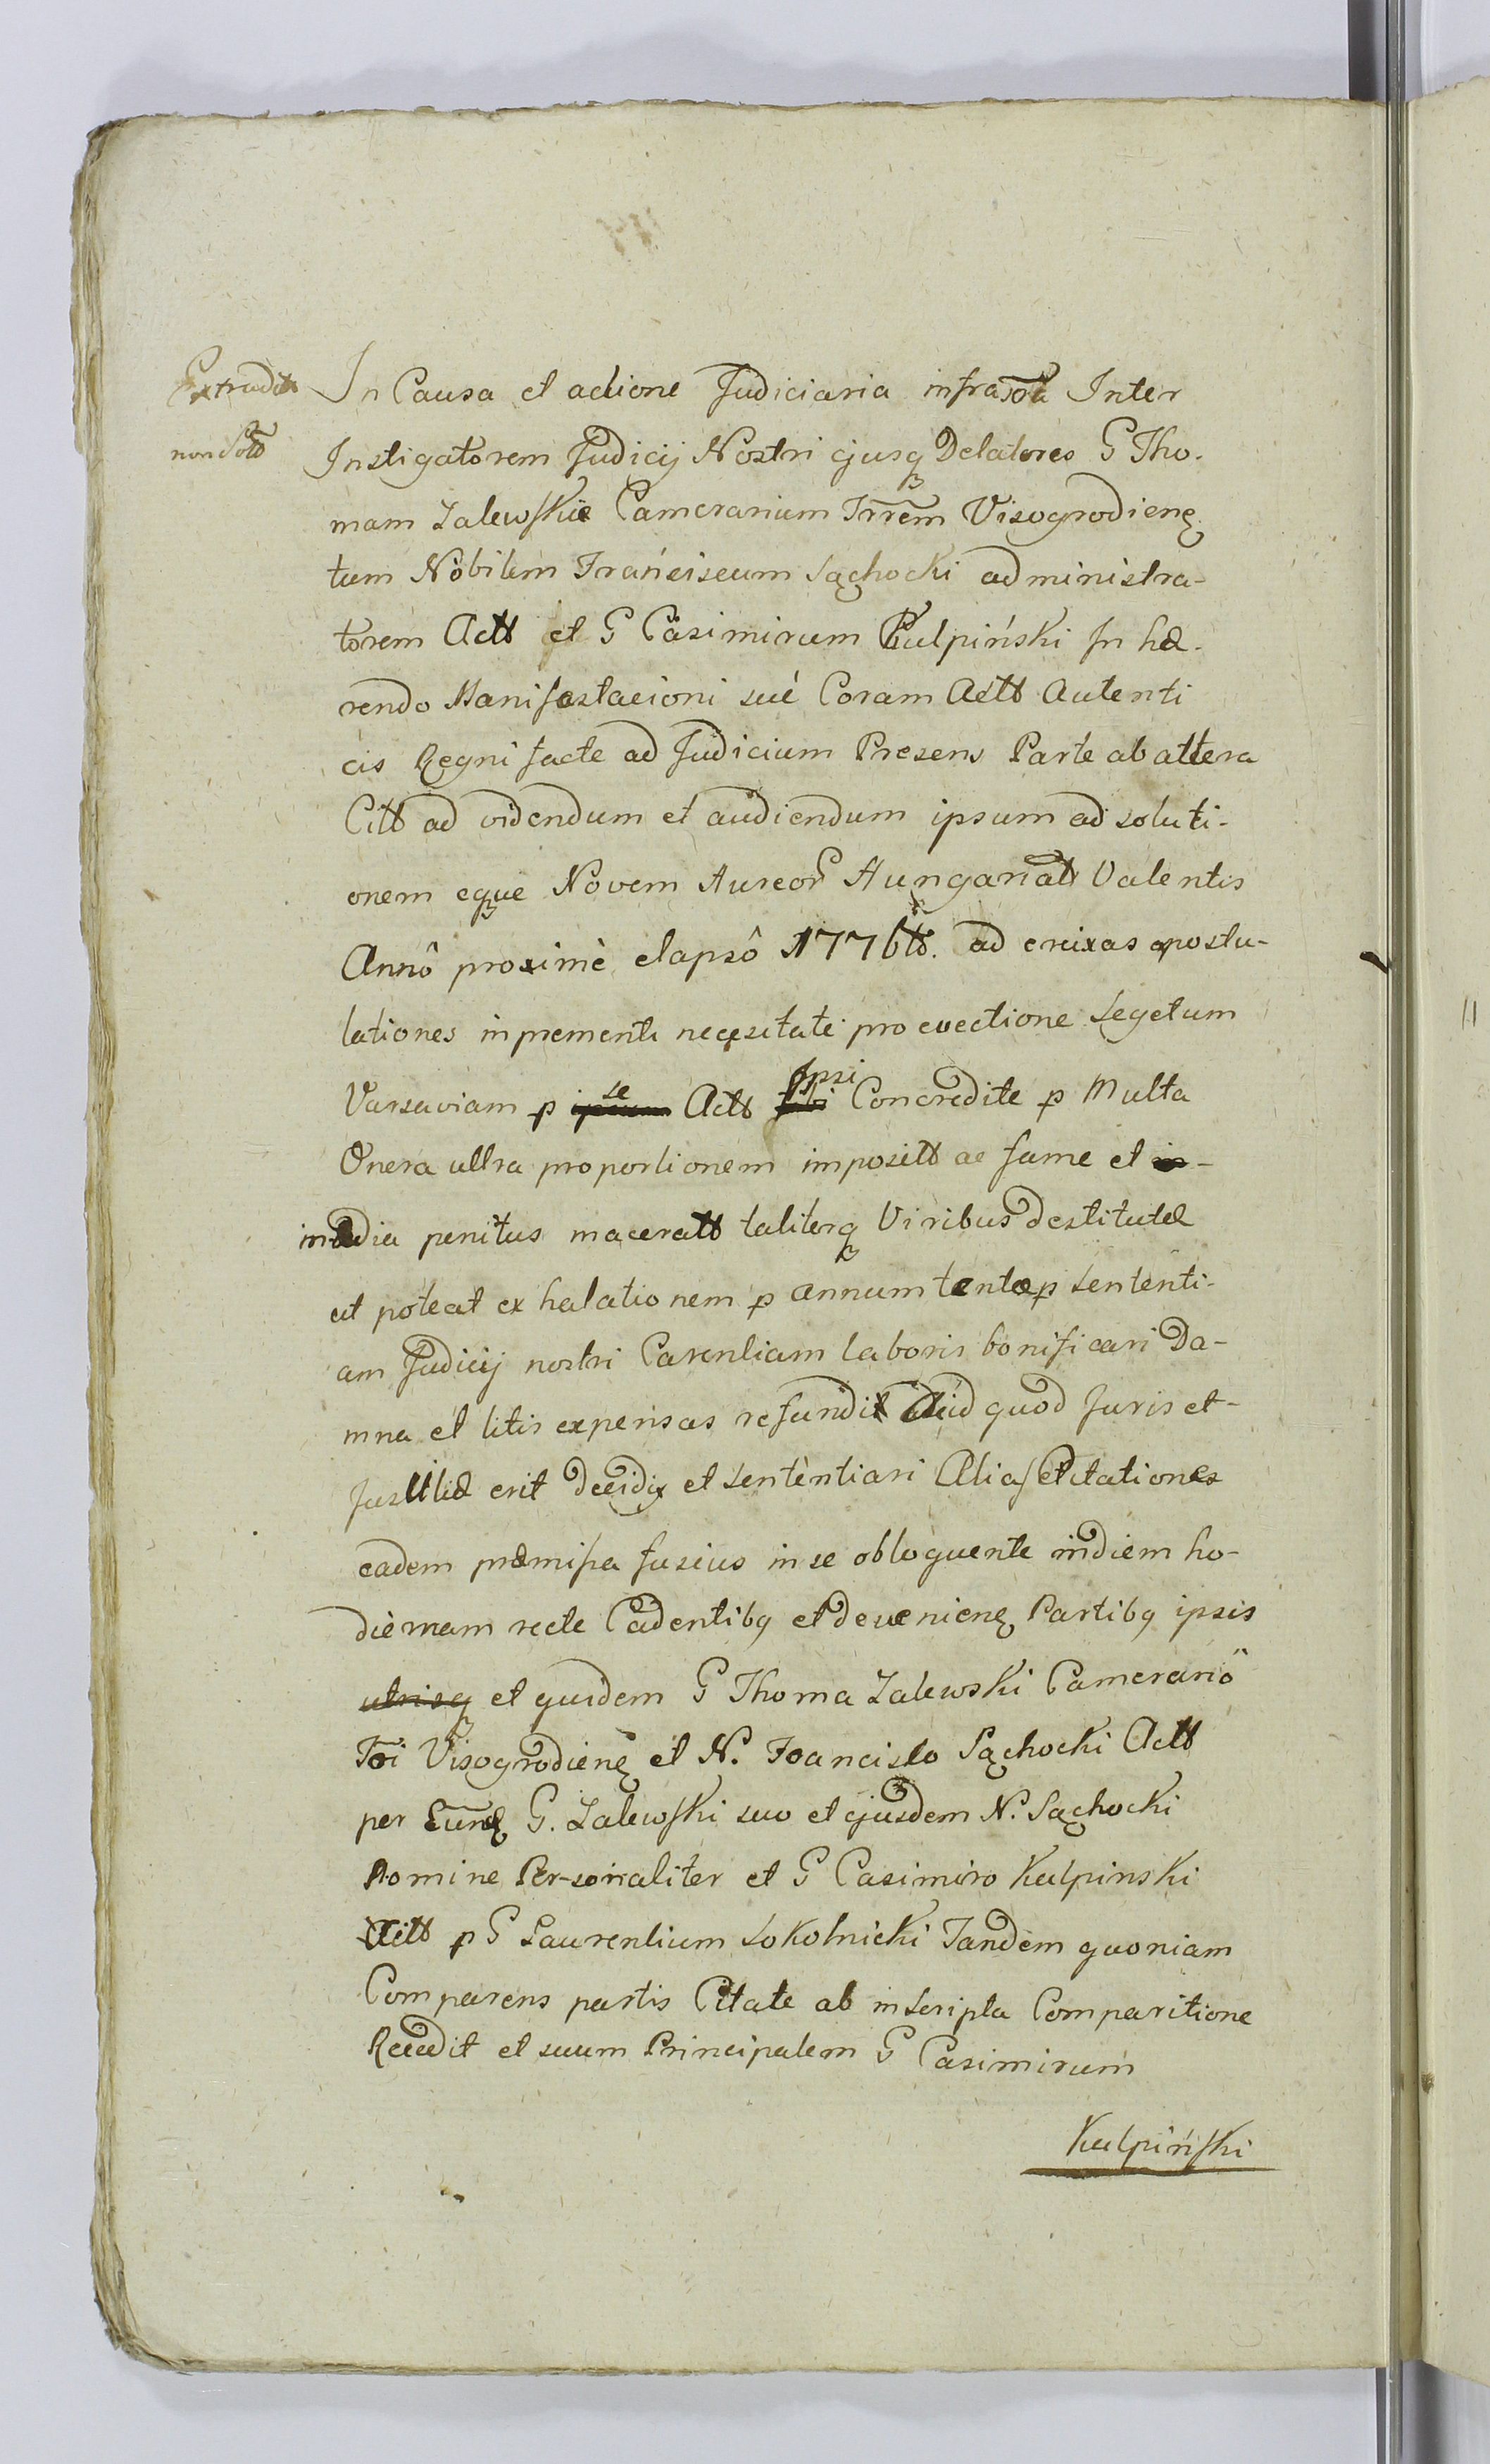 Extradtt In Causa et actione Judiciaria infrascrta Inter
non soltô Instigatorem Judicij Nostri ejusq Delatores G Tho-
mam Zalewskie Camerarium Trrem Visogrodienę
tum Nobilem Franciscum Sąchocki administra-
torem Actt et G Casimirum Kulpiński In hæ-
rendo Manifestacioni sué Coram Actt Autenti
cis Regni facte ad Judicium Presens Parte ab altera
Citt ad videndum et audiendum ipsum ad soluti-
onem eque Novem Aureor Hungariatt Valentis
Annô proximè elapsô 1776tô. ad enixas apostu-
lationes inprementi necęsitate pro evectione segetum
Varsaviam p se Actt Ipsi Concredite p Multa
Onera ultra proportionem imposett ac fame et
inædia penitus maceratt taliterq Viribus destitutæ
ut poteat exhalationem p annum tentæ p sententi-
am Judicij nostri Carentiam laboris bonificari Da-
mna et litis expensas refundi id quod Juris et
Justitiæ erit decidi et sententiari Alias Citationes
eadem præmissa fusius in se obloquente in diem ho-
diernam recte Cadentibq et devenienę Partibq ipsis
utrisq et quidem G Thoma Zalewski Camerariô
Tri Visogrodienę et N. Francisco Sąchocki Actt
per Eund G. Zalewski suo et ejusdem N. Sąchocki
Nomine Personaliter et G Casimiro Kulpinski
Citt p G Laurentium Sokolnicki Tandem quoniam
Comparens partis Citate ab inscripta Comparitione
Recedit et suum Principalem G Casimirum
Kulpiński